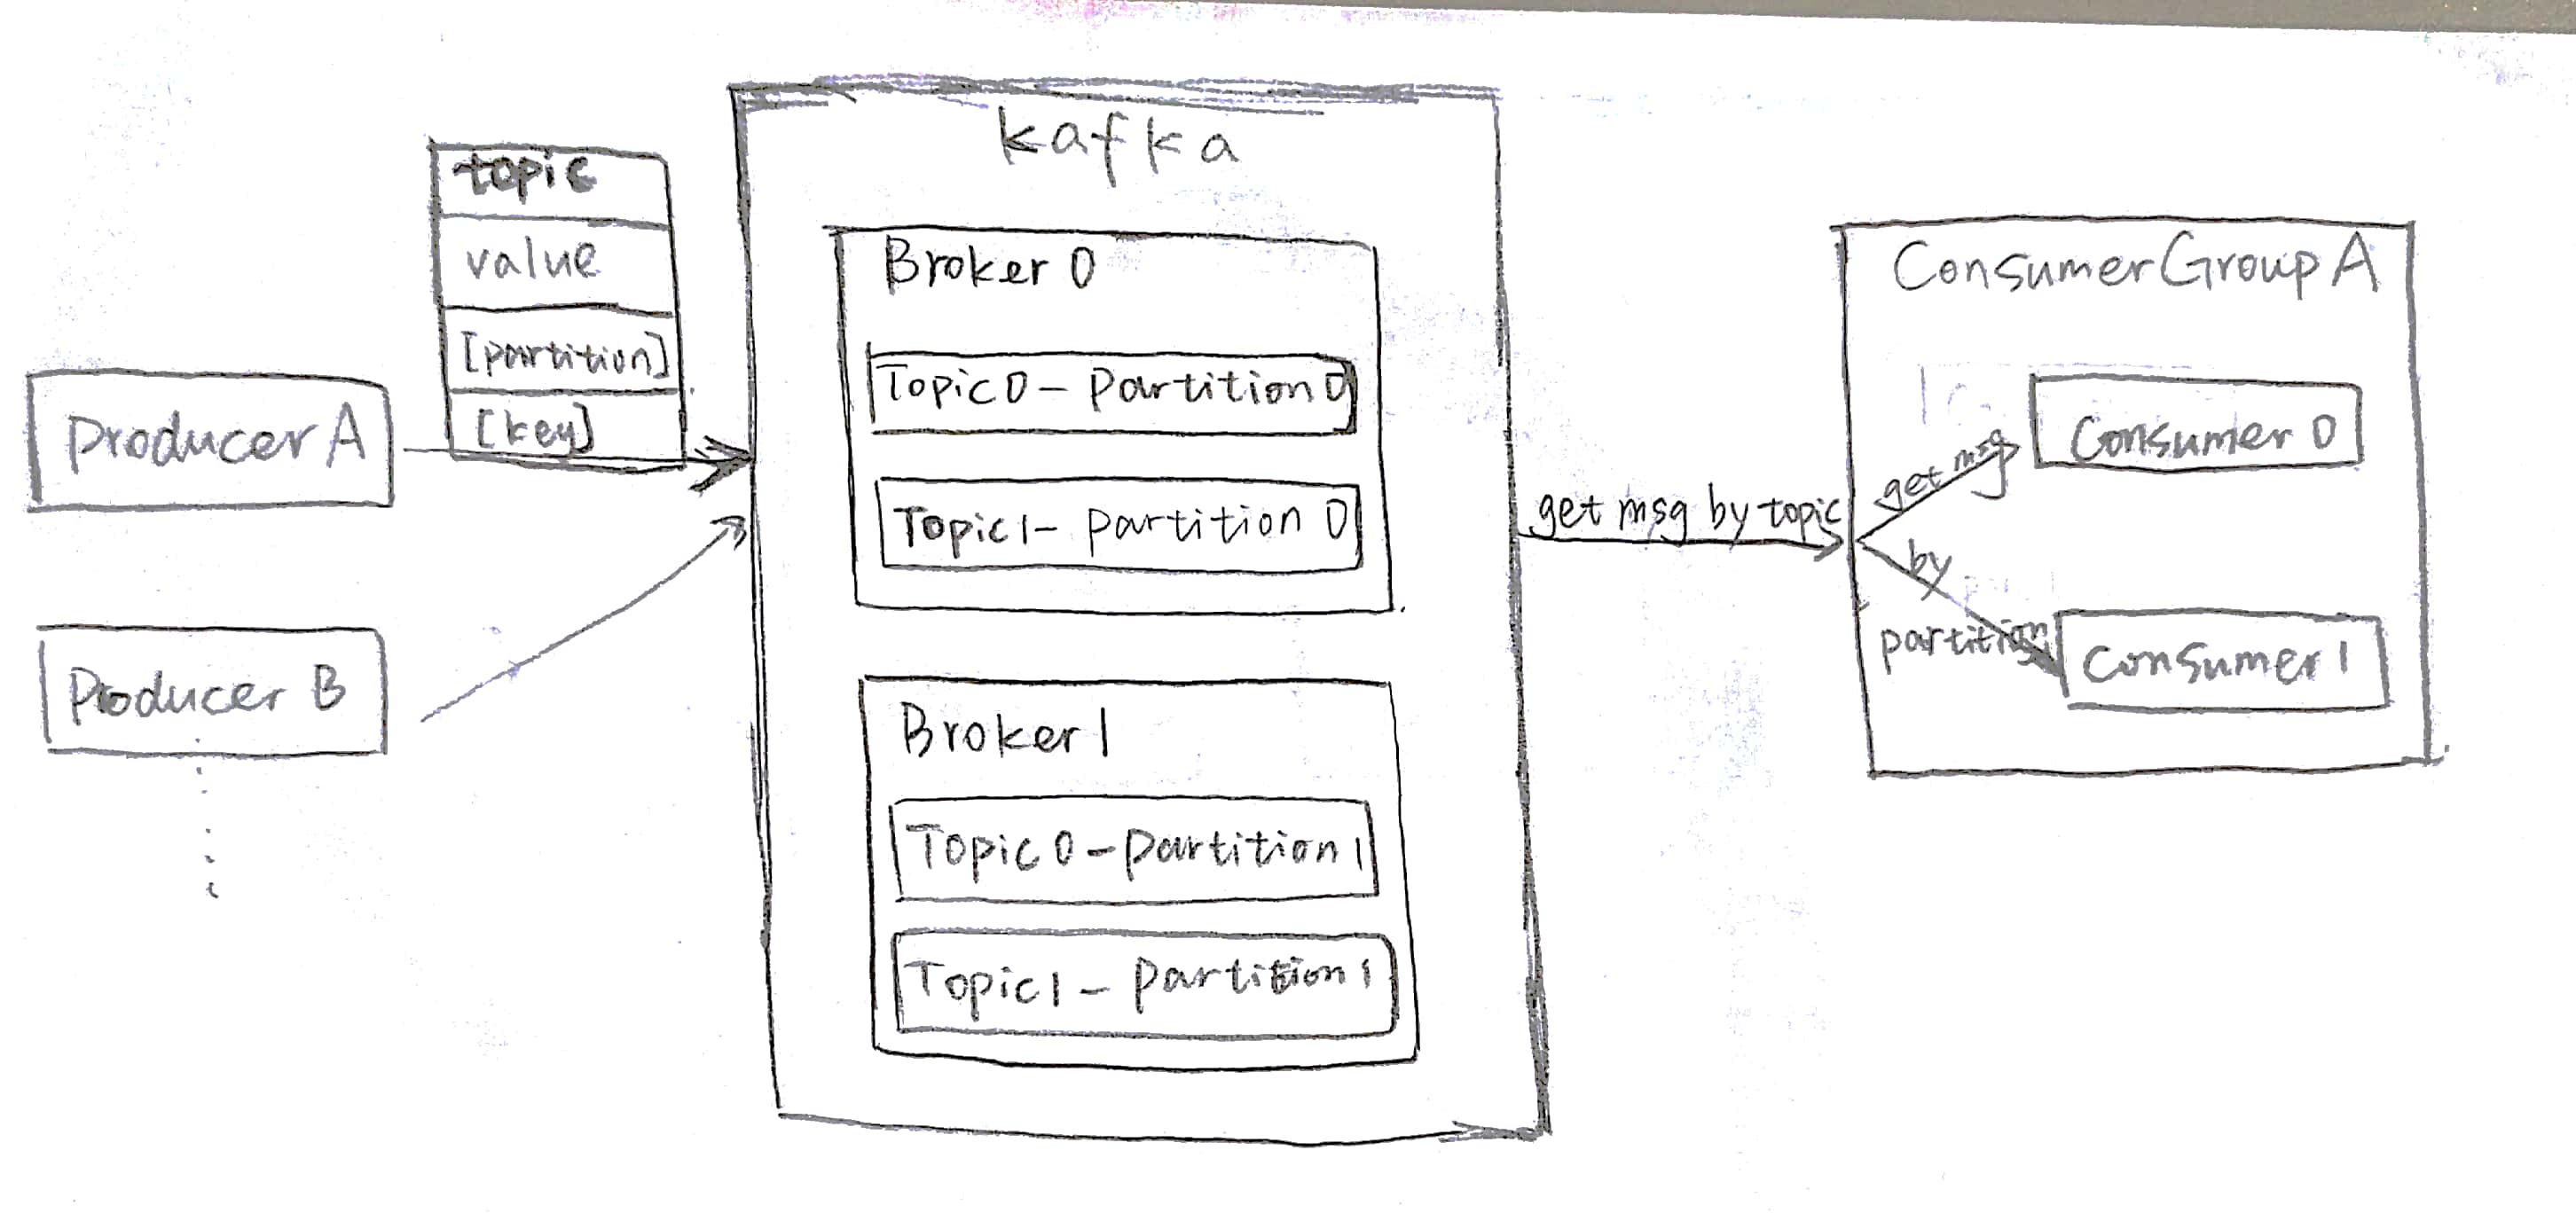 kafka
topic
value
[partition]
[key]
Producer A
Producer B
Broker 0
Topic 0 - Partition 0
Topic 1 - Partition 0
Broker 1
Topic 0 - Partition 1
Topic 1 - Partition 1
get msg by topic
Consumer Group A
get msg
by
partition
Consumer 0
Consumer 1